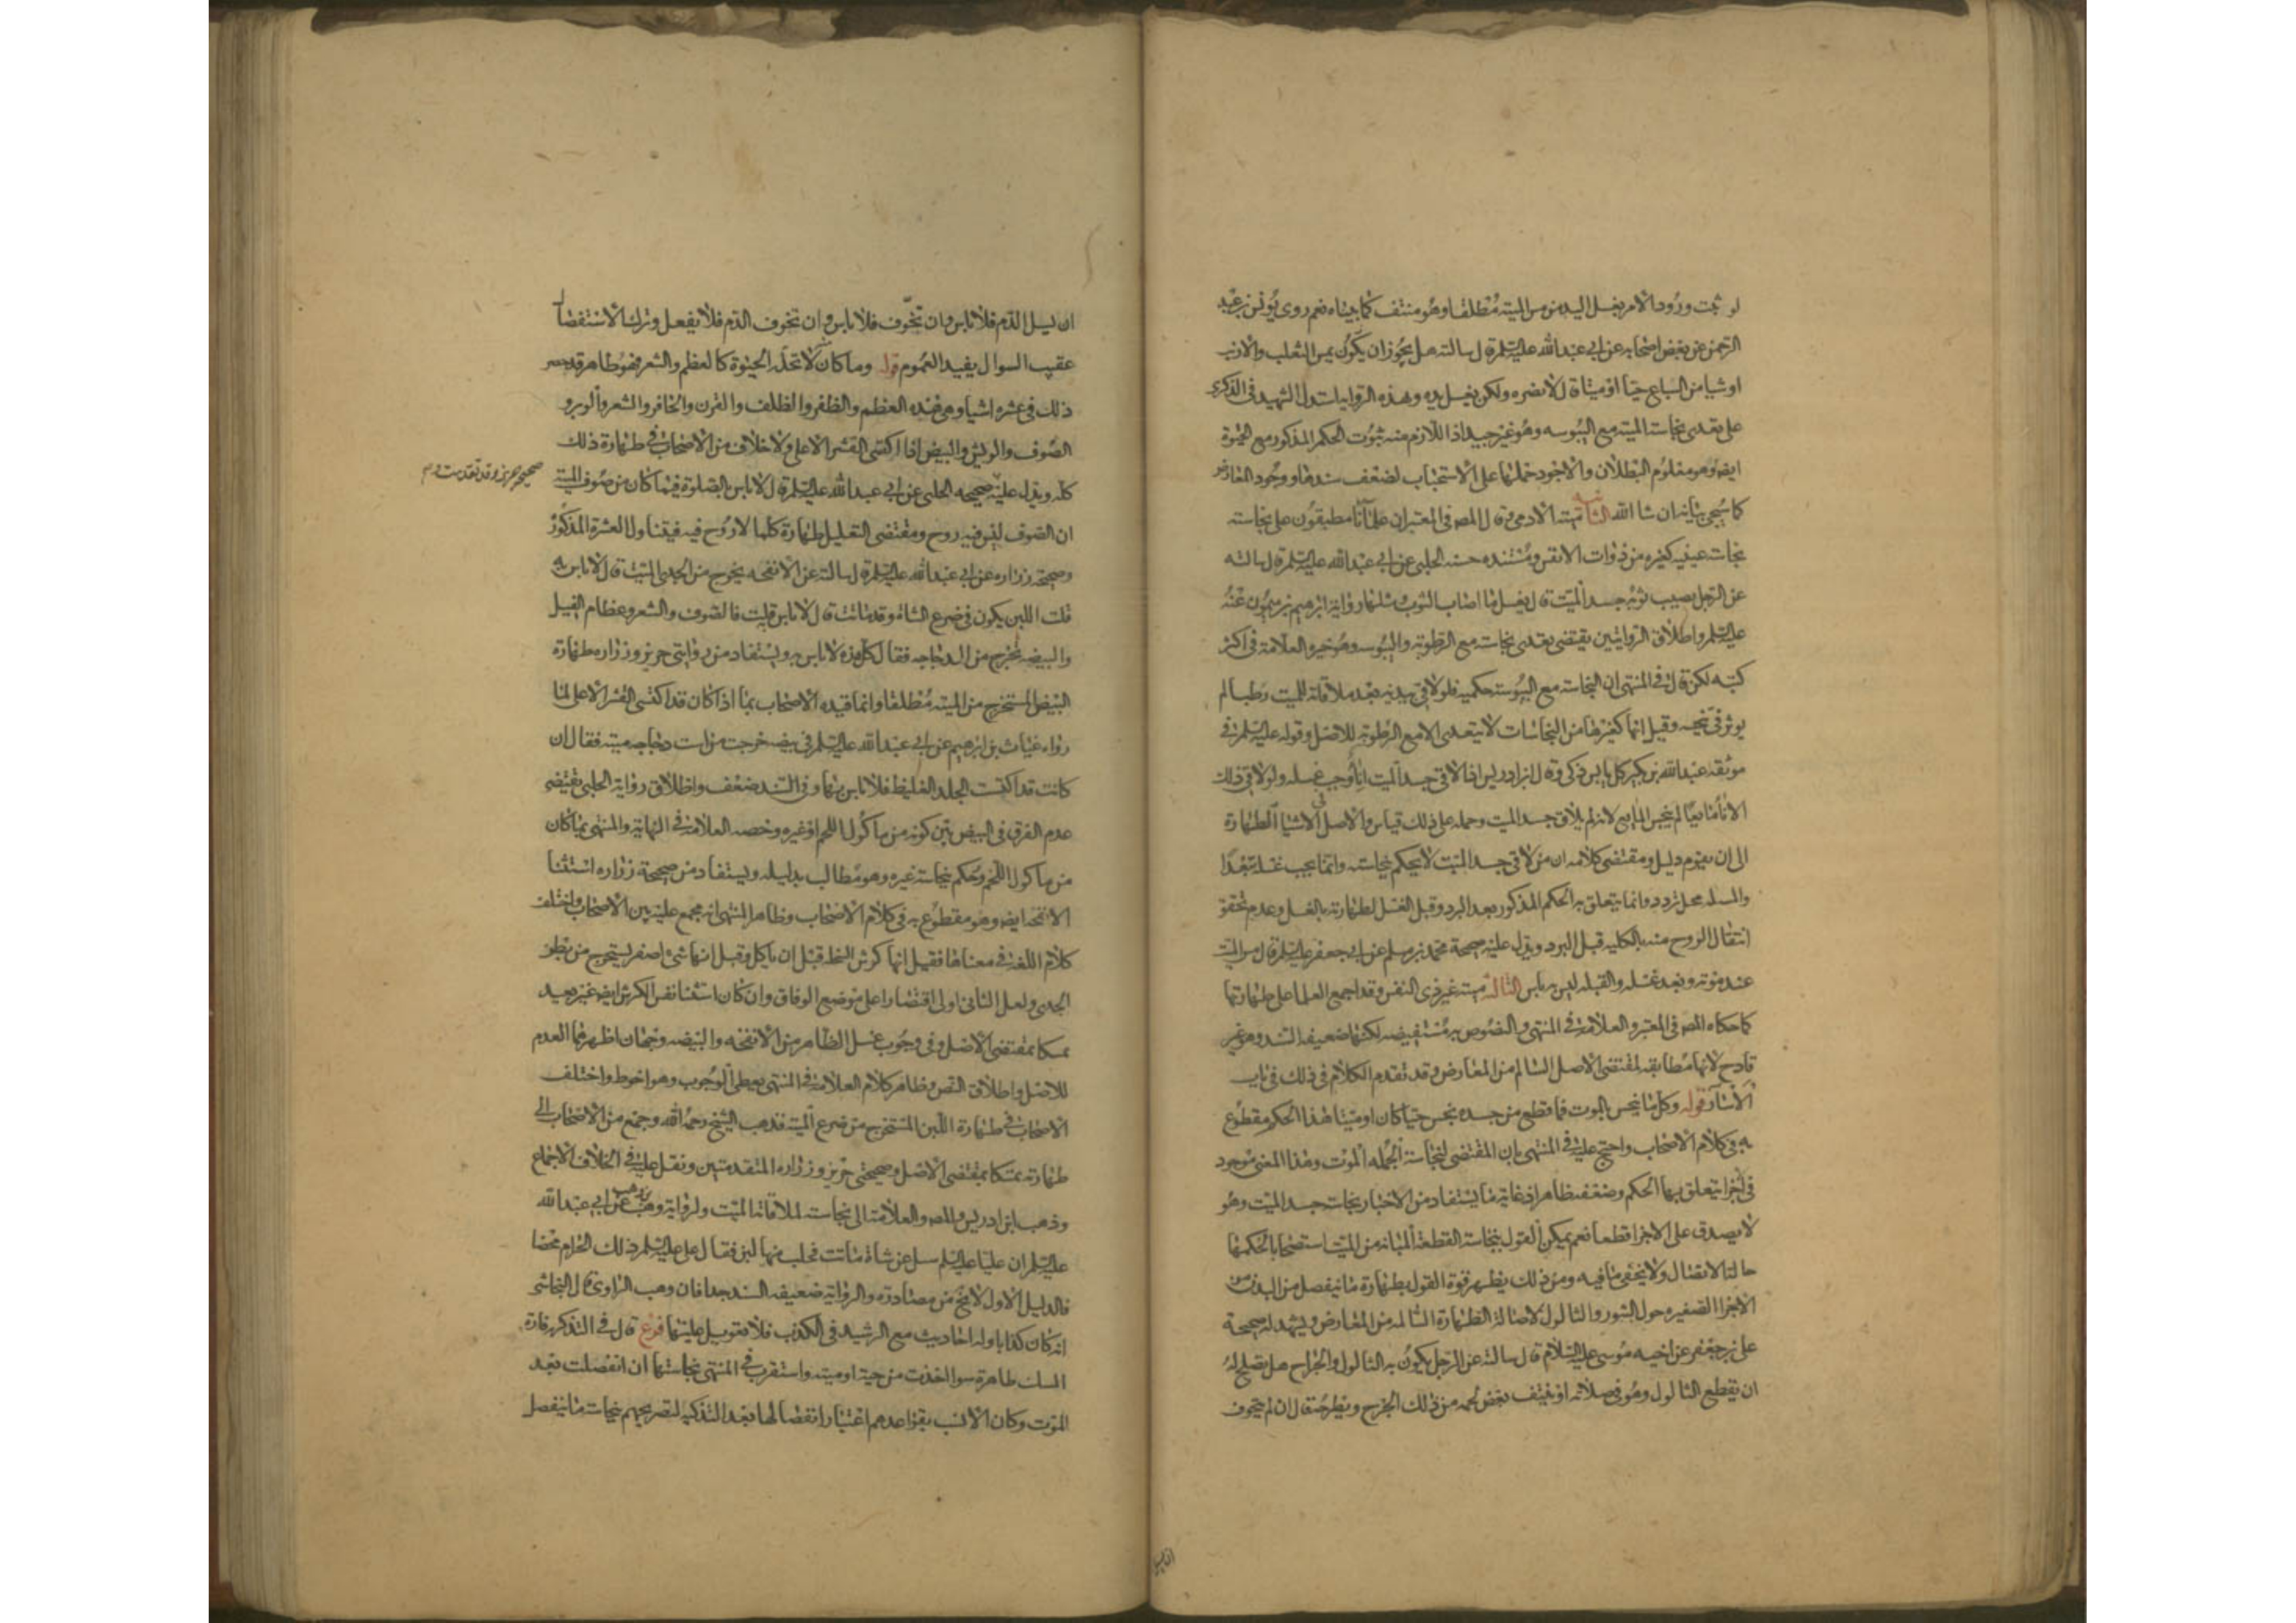 لو ثبت ورود الامر بغسل اليد من مس الميته مطلقا وهو منتف كما بيناه نعم روى يونس بن عبد
الرحمن عن بعض اصحابه عن ابي عبد الله عليه السلم قال سالته هل يجوز ان يكون يمس الثعلب والارنب
او شيا من السباع حيا او ميتا قال لا يضره ولكن يغسل يده وهذه الروايات استدل الشهيد في الذكرى
على تعدى نجاسة الميته مع اليبوسه وهو غير جيد اذ اللازم منه ثبوت الحكم المذكور مع الحيوة
ايضا وهو معلوم البطلان والاجود حملها على الاستحباب لضعف سندها ووجود المعارض
كما سيجي بيانه ان شا الله الثانيه ميته الادمي وقال المصـ في المعتبر ان علمائنا مطبقون على نجاسته
نجاسة عينيه كغيره من ذوات الانفس ومستنده حسنه الحلبى عن ابي عبد الله عليه السلم قال سالته
عن الرجل يصيب ثوبه جسد الميت قال يغسل ما اصاب الثوب ومثلها رواية ابرهيم بن ميمون عنه
عليه السلم واطلاق الروايتين يقتضى تعدى نجاسته مع الرطوبة واليبوسه وهو خيره العلامة في اكثر
كتبه لكن قال في المنتهى ان النجاسة مع اليبوسة حكميه فلو لاقى ببدنه بعد ملاقاته للميت رطبا لم
يوثر في تنجيه وقيل انها كغيرها من النجاسات لا يتعدى الا مع الرطوبة للاصل وقوله عليه السلم في
موثقه عبد الله بن بكير كل يابس ذكي وقال ابن ادريس اذا لاقى جسد الميت انا وجب غسله ولو لاقى ذلك
الانا مايعا لم ينجس المايع لانه لم يلاق جسد الميت وحمله على ذلك قياس والاصل في الاشيا الطهارة
الى ان يقوم دليل ومقتضى كلامه ان من لاقى جسد الميت لا يحكم بنجاسته وانما يجب غسله تعبدا
والمسله محل تردد وانما يتعلق به الحكم المذكور بعد البرد وقبل الغسل لطهارته بالغسل وعدم تحقق
انتقال الروح منه بالكليه قبل البرد ويدل عليه صحيحة محمد بن مسلم عن ابي جعفر عليه السلم قال مس الميت
عند موته وبعد غسله والقبله ليس به باس الثالثه ميته غير ذى النفس وقد اجمع العلما على طهارتها
كما حكاه المصـ في المعتبر والعلامة في المنتهى والنصوص به مستفيضه لكنها ضعيفه السند وهو غير
قادح لانها مطابقه لمقتضى الاصل السالم من المعارض وقد تقدم الكلام في ذلك في باب
الأسآر قوله وكل ما ينجس بالموت فما قطع من جسده نجس حيا كان او ميتا هذا الحكم مقطوع
به في كلام الاصحاب واحتج عليه في المنتهى بان المقتضى لنجاسة الجمله الموت وهذا المعنى موجود
في اجزا يتعلق بها الحكم وضعفه ظاهر اذ غاية ما يستفاد من الاخبار نجاسة جسد الميت وهو
لا يصدق على الاجزا قطعا نعم يمكن القول بنجاسة القطعة المبانه من الميت استصحابا لحكمها
حالة الاتصال ولا يخفى ما فيه ومن ذلك يظهر قوة القول بطهارة ما ينفصل من البدن من
الاجزا الصغيره حول البثور والثالول لاصالة الطهارة السالمه من المعارض ويشهد له صحيحة
على بن جعفر عن اخيه موسى عليه السلام قال سالته عن الرجل يكون به الثالول والجراح هل يصلح له
ان يقطع الثالول وهو في صلاته او ينتف بعض لحمه من ذلك الجرح ويطرحه قال ان لم يتخوف
ان يسيل
ان يسيل الدم فلا باس وان تخوف فلا باس وان تخوف الدم فلا يفعل وترك الاستفصال
عقيب السوال يفيد العموم قوله وما كان لا تحله الحيوة كالعظم والشعر فهو طاهر قد حصر
ذلك في عشره اشيا وهي هذه العظم والظفر والظلف والقرن والحافر والشعر والوبر و
الصوف والريش والبيض اذا اكتسى القشر الاعلى ولا خلاف من الاصحاب في طهارة ذلك
كله ويدل عليه صحيحه الحلبى عن ابي عبد الله عليه السلم قال لا باس بالصلوة فيما كان من صوف الميته
صحيحه حريز وقد تقدمت و
ان الصوف ليس فيه روح ومقتضى التعليل طهارة كلما لا روح فيه فيتناول العشرة المذكور
وصحيحة زراره عن ابي عبد الله عليه السلم قال سالته عن الانفحه يخرج من الجدى الميت قال لا باس به
قلت اللبن يكون في ضرع الشاة وقد ماتت قال لا باس قلت فالصوف والشعر وعظام الفيل
والبيضه تخرج من الدجاجه فقال كل هذه لا باس به ويستفاد من روايتى حريز وزراره طهارة
البيض المستخرج من الميته مطلقا وانما قيده الاصحاب بما اذا كان قد اكتسى القشر الاعلى لما
رواه غياث بن ابرهيم عن ابي عبد الله عليه السلم في بيضه خرجت من است دجاجه ميته فقال ان
كانت قد اكتست الجلد الغليظ فلا باس بها وفى السند ضعف واطلاق رواية الحلبى يقتضى
عدم الفرق في البيض بين كونه من ماكول اللحم او غيره وخصه العلامة في النهاية والمنتهى بما كان
من ماكول اللحم وحكم بنجاسة غيره وهو مطالب بدليله ويستفاد من صحيحة زراره استثنا
الانفحه ايضه وهو مقطوع به في كلام الاصحاب وظاهر المنتهى انه مجمع عليه بين الاصحاب واختلف
كلام اللغة في معناها فقيل انها كرش السخله قبل ان ياكل وقيل انها شئ اصفر يستخرج من بطن
الجدى ولعل الثانى اولى اقتصارا على موضع الوفاق وان كان استثنا نفس الكرش ايضه غير بعيد
تمسكا بمقتضى الاصل وفى وجوب غسل الظاهر من الانفحه والبيضه وجهان اظهرهما العدم
للاصل واطلاق النص وظاهر كلام العلامة في المنتهى يعطى الوجوب وهو احوط واختلف
الاصحاب في طهارة اللبن المستخرج من ضرع الميته فذهب الشيخ رحمه الله وجمع من الاصحاب الى
طهارته تمسكا بمقتضى الاصل وصحيحتى حريز وزراره المتقدمتين ونقل عليه في الخلاف الاجماع
وذهب ابن ادريس والمصـ والعلامة الى نجاسته لملاقاتها الميت ولرواية وهب بن وهب عن ابي عبد الله
عليه السلم ان عليا عليه السلم سل عن شاة ماتت فحلب منها لبن فقال على عليه السلم ذلك الحرام محضا
فالدليل الاول لا يخ من مصادرة والرواية ضعيفه السند جدا فان وهب الراوى قال النجاشى
انه كان كذابا وله احاديث مع الرشيد في الكذب فلا تعويل عليها فرع قال في التذكره فارة
المسك طاهرة سوا اخذت من حية او ميته واستقرب في المنتهى نجاستها ان انفصلت بعد
الموت وكان الانسب بقواعدهم اعتبار انفصالها بعد التذكيه لتصريحهم بنجاسة ما ينفصل